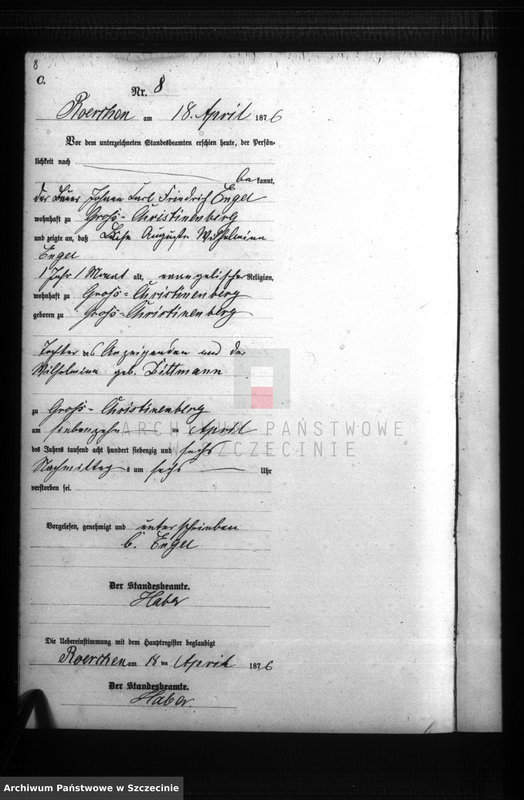 8
C.
Nr. 8
Roerchen am 18. April 1876
Vor dem unterzeichneten Standesbeamten erschien heute, der Persön-
lichkeit nach
bekannt,
der Bauer Johann Carl Friedrich Engel
wohnhaft zu Groß-Christinenberg
und zeigte an, daß Auguste Wilhelmine
Engel
1 Jahr 1 Monat alt, evangelische Religion,
wohnhaft zu Groß-Christinenberg
geboren zu Groß-Christinenberg
Tochter des Anzeigenden und der
Wilhelmine geb. Dittmann
zu Groß-Christinenberg
am siebenzehn ten April
des Jahres tausend acht hundert siebenzig und sechs
Nachmittags um sechs Uhr
verstorben sei.
Vorgelesen, genehmigt und unterschrieben
C. Engel
Der Standesbeamte.
Haber
Die Uebereinstimmung mit dem Hauptregister beglaubigt
Roerchen am 18 ten April 1876
Der Standesbeamte.
Haber
ARCHIWUM PAŃSTWOWE
W SZCZECINIE
Archiwum Państwowe w Szczecinie